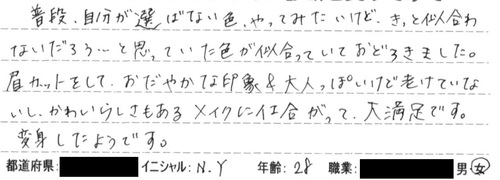 普段、自分が選ばない色、やってみたいけど、きっと似合わ
ないだろう…と思っていた色が似合っていておどろきました。
眉カットをして、おだやかな印象&大人っぽいけど老けていな
いし、かわいらしさもあるメイクに仕合がって、大満足です。
変身したようです。
都道府県: イニシャル: N.Y 年齢: 28 職業: 男・女